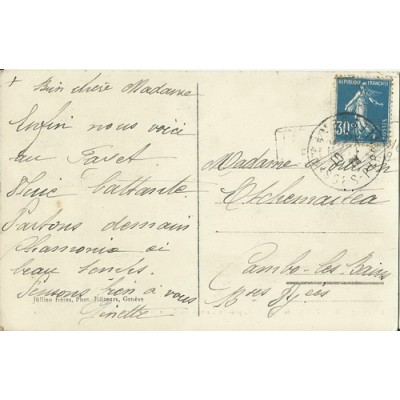 + Bien chère Madame
Enfin nous voici
au Fayet.
Pluie battante.
Partons demain
Chamonix si
beau temps.
Pensons bien à vous
Ginette
Jullien Frères, Phot. Editeurs, Genève
REPUBLIQUE FRANCAISE
30c
Madame
Etchemaïtea
Cambo-les-Bains
Bses Pyées